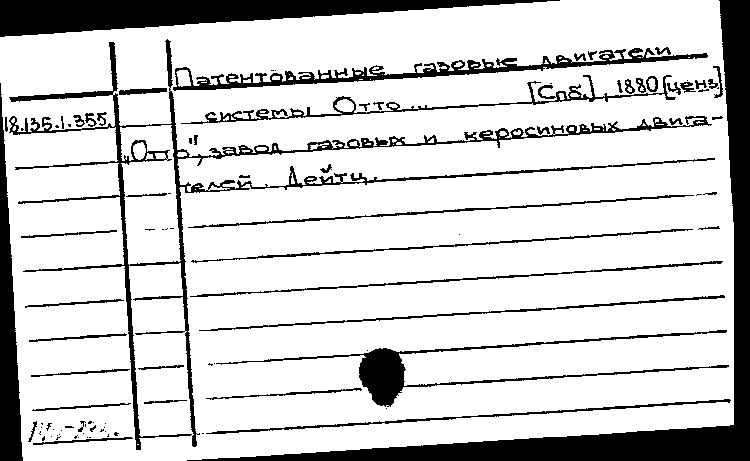 Патентованные газовые двигатели
18.135.1.355. системы Отто... [Спб.], 1880 [ценз]
„Отто", завод газовых и керосиновых двига-
телей Дейтц.